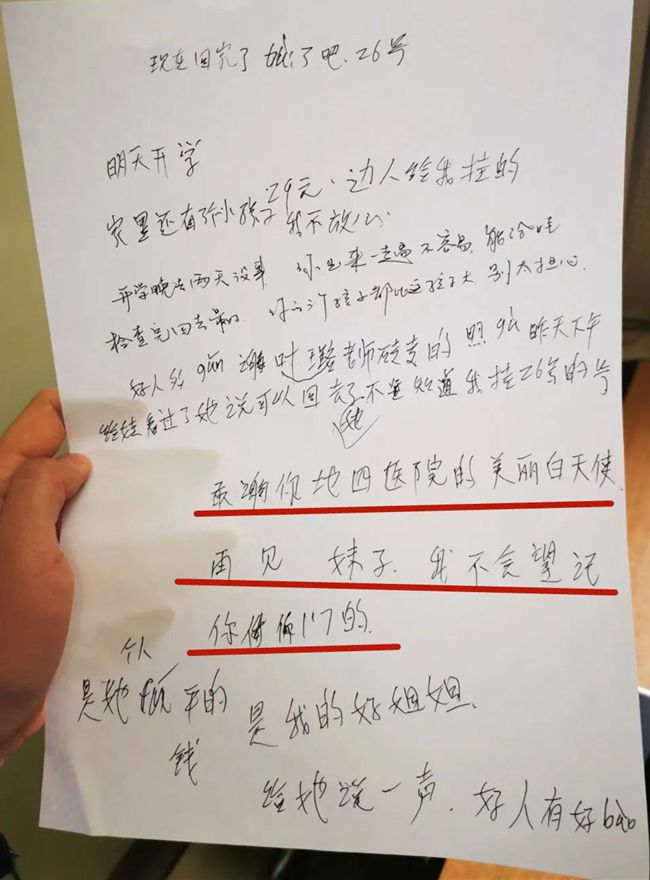 现在回家了 就了吧、26号
明天开学
29元、边人给我挂的
家里还有个小孩子我不放心
开学晚去两天没事 你出来一趟不容易、能给娃
检查完回去最好、你的孩子都比这孩子大、别太担心
好人 谢 叶 老师 的 照 gù 昨天下午
给娃看过了她说可以回去了不 知道我挂26号的号
她
感谢你地四医院的美丽白天使
再见 妹子、我不会望记
你 们的
个人
是她 的 是我的好姐姐、
钱
给她说一声、好人有好bào